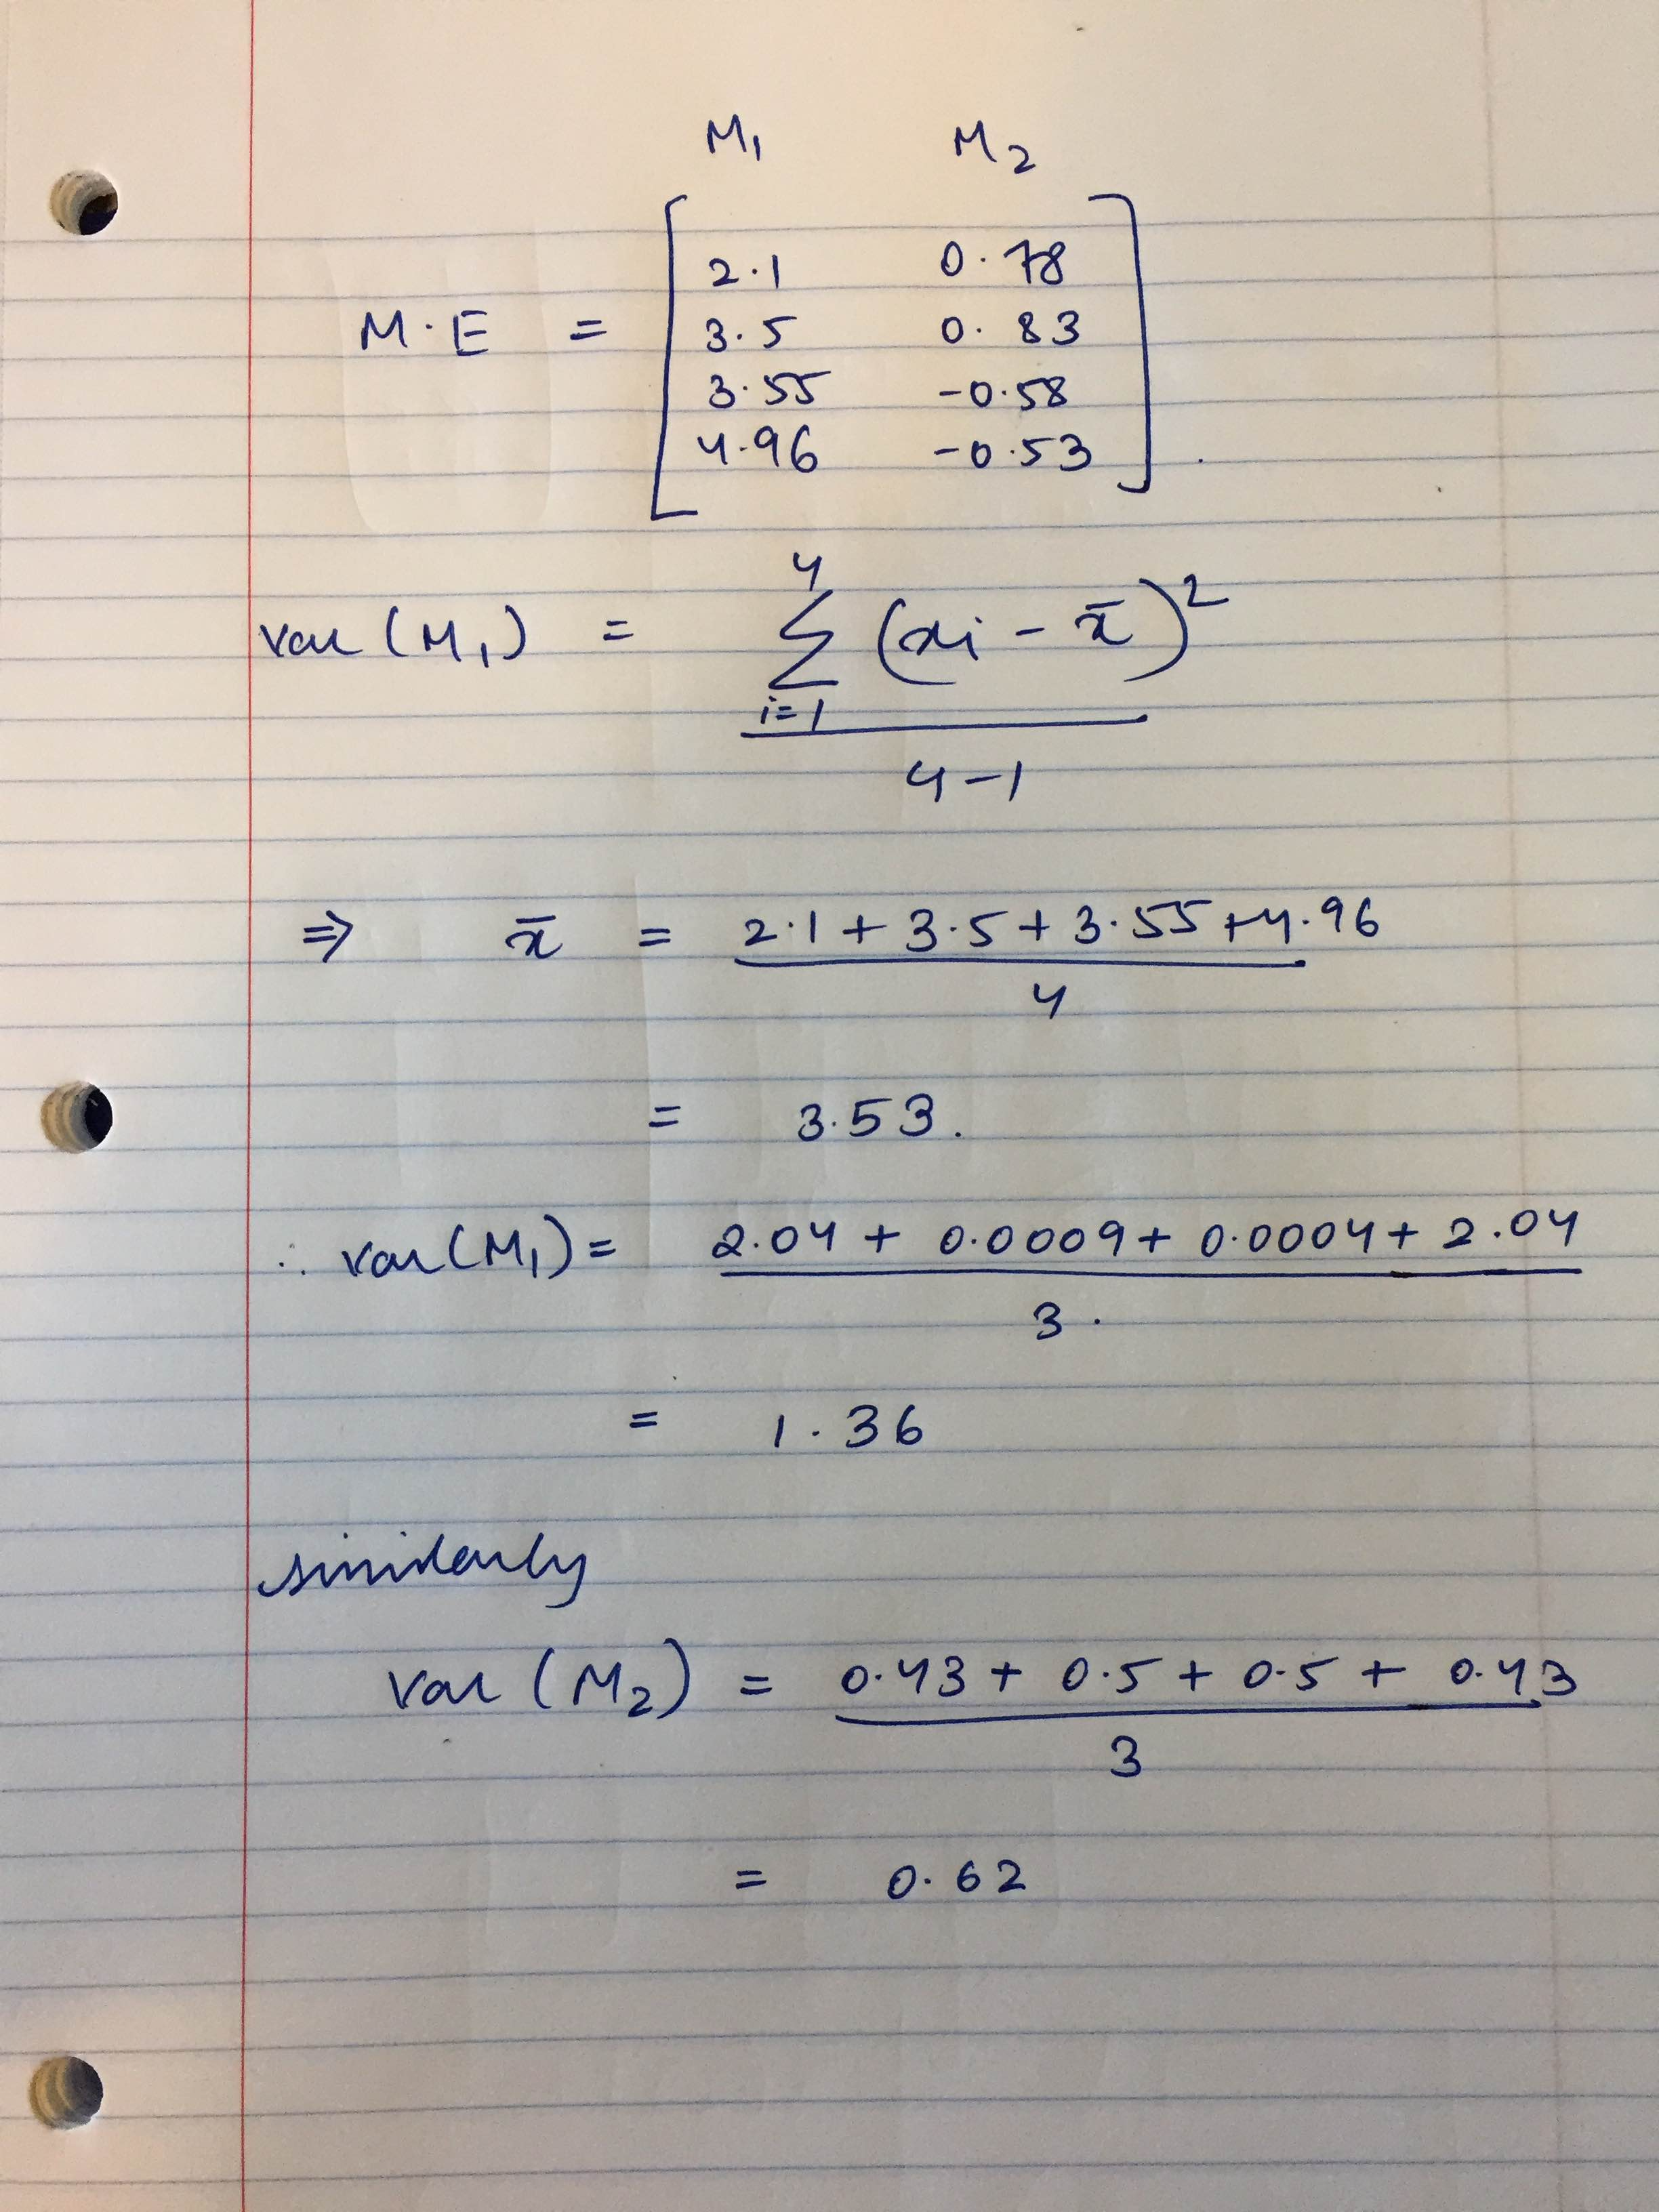 M₁ M₂
2.1 0.78
M·E = 3.5 0.83
3.55 -0.58
4.96 -0.53 .
4
var (M₁) = Σ (xi - x̄)²
i=1
4-1
⇒ x̄ = 2.1 + 3.5 + 3.55 + 4.96
4
= 3.53.
∴ var(M₁) = 2.04 + 0.0009 + 0.0004 + 2.04
3.
= 1.36
similarly
var (M₂) = 0.43 + 0.5 + 0.5 + 0.43
3
= 0.62